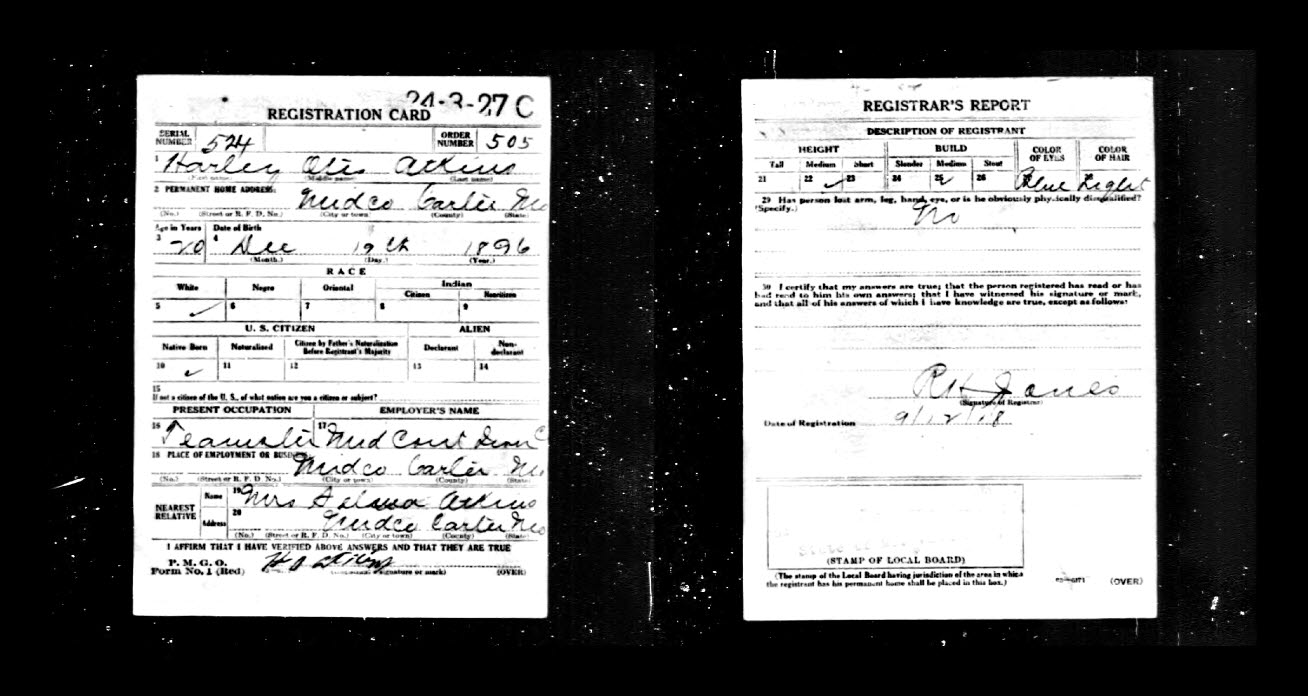 24-3-27 C
REGISTRATION CARD
SERIAL NUMBER 524 ORDER NUMBER 505
1 Harley Otis Atkins
(First name) (Middle name) (Last name)
2 PERMANENT HOME ADDRESS: Midco Carter Mo
(No.) (Street or R. F. D. No.) (City or town) (County) (State)
Age in Years Date of Birth
3 20 4 Dec 19th 1896
(Month.) (Day.) (Year.)
RACE
White Negro Oriental Indian
Citizen Noncitizen
5 ✓ 6 7 8 9
U. S. CITIZEN ALIEN
Native Born Naturalized Citizen by Father's Naturalization Before Registrant's Majority Declarant Non-declarant
10 ✓ 11 12 13 14
15
If not a citizen of the U. S., of what nation are you a citizen or subject?
PRESENT OCCUPATION EMPLOYER'S NAME
16 Teamster 17 Mid Cont Iron C
18 PLACE OF EMPLOYMENT OR BUSIN
Midco Carter Mo
(No.) (Street or R. F. D. No.) (City or town) (County) (State)
NEAREST RELATIVE Name 19 Mrs Atkins
Address 20 Midco Carter Mo
(No.) (Street or R. F. D. No.) (City or town) (County) (State)
I AFFIRM THAT I HAVE VERIFIED ABOVE ANSWERS AND THAT THEY ARE TRUE
P. M. G. O.
Form No. 1 (Red) H O Atkins (Registrant's signature or mark) (OVER)
REGISTRAR'S REPORT
DESCRIPTION OF REGISTRANT
HEIGHT BUILD COLOR OF EYES COLOR OF HAIR
Tall Medium Short Slender Medium Stout
21 22 ✓ 23 24 25 ✓ 26 27 Blue 28 Light
29 Has person lost arm, leg, hand, eye, or is he obviously physically disqualified?
(Specify.) No
30 I certify that my answers are true; that the person registered has read or has
had read to him his own answers; that I have witnessed his signature or mark,
and that all of his answers of which I have knowledge are true, except as follows:
R H Jones
(Signature of Registrar)
Date of Registration 9/12/18
State of
(STAMP OF LOCAL BOARD)
(The stamp of the Local Board having jurisdiction of the area in which
the registrant has his permanent home shall be placed in this box.)
(OVER)